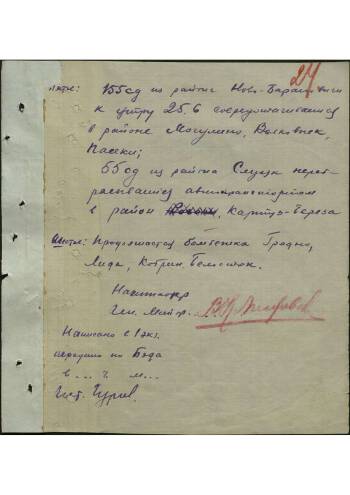 24
пятое: 155сд из района Ново-Барановичи
к утру 25.6 сосредотачивается
в районе Могулино, Волковыск,
Пасеки;
55сд из района Слуцк переб-
расывается автотранспортом
в район Картуз-Береза
шестое: Продолжается бомбежка Гродно,
Лида, Кобрин, Белосток.
Наштаокр
Ген. Майор
Написано в 1 экз.
передано по Бодо
в ... ч. м...